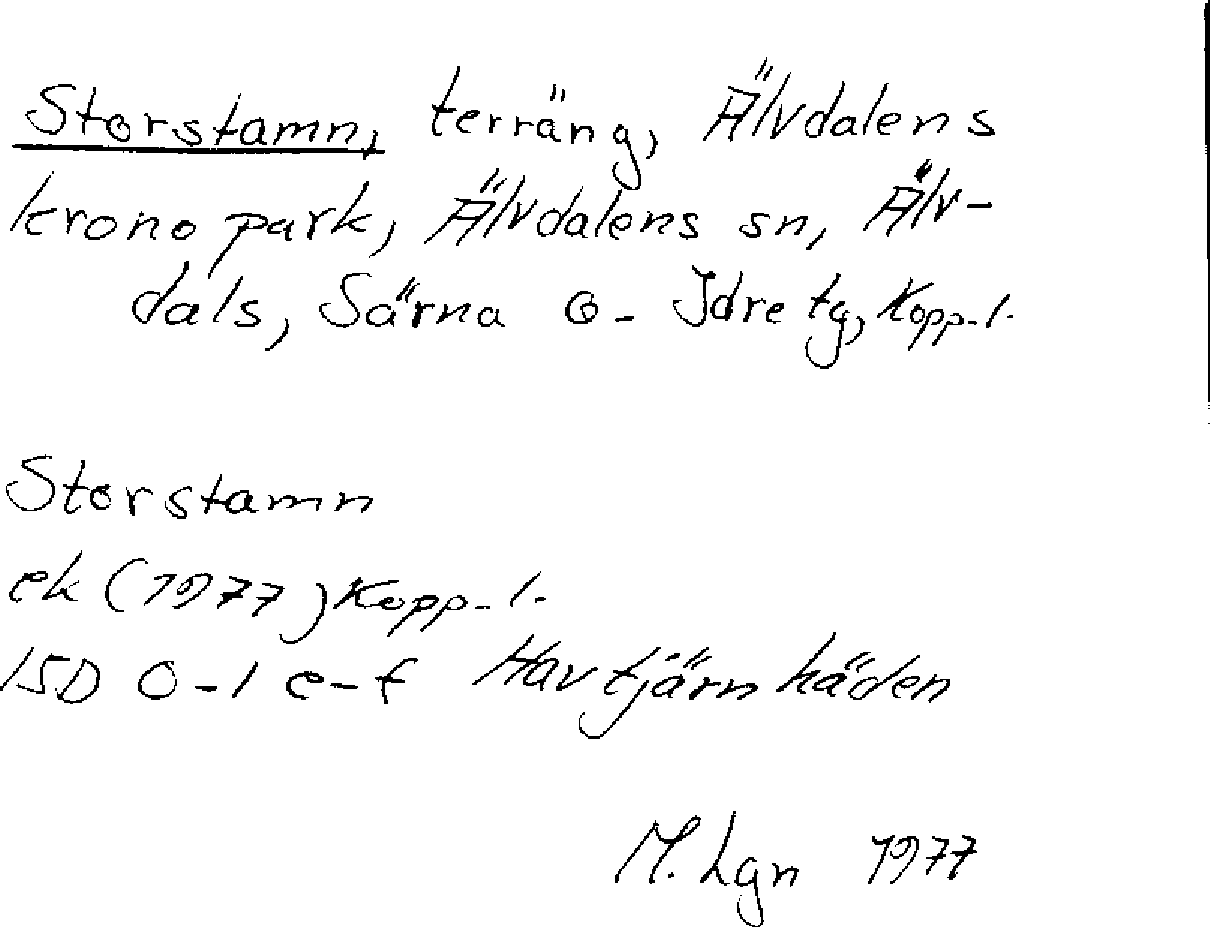 Storstamn, terräng, Älvdalens
krono park, Älvdalens sn, Älv-
dals, Särna o. Idre tg, Kopp. l.
Storstamn
ek (1977) Kopp. l.
15D 0-1 e-f Havtjärnhäden
M. Lgn 1977